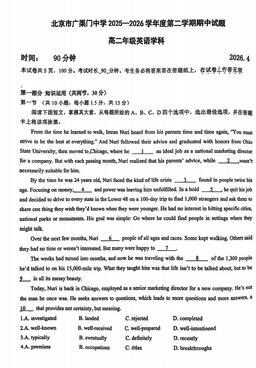 北京市广渠门中学 2025—2026 学年度第二学期期中试题
高二年级英语学科
时间： 90 分钟 2026.4
本试卷共 8 页，100 分。考试时长 90 分钟。考生务必将答案答在答题纸上，在试卷上作答无效
第一部分 知识运用（共两节，30 分）
第一节 （共 10 小题；每小题 1.5 分，共 15 分）
阅读下面短文，掌握其大意，从每题所给的 A、B、C、D 四个选项中，选出最佳选项，并在答题
卡上将该项涂黑。
From the time he learned to walk, Imran Nuri heard from his parents time and time again, "You must
strive to be the best at everything." And Nuri followed their advice and graduated with honors from Ohio
State University, then moved to Chicago, where he 1 an ideal job as a national marketing director
for a company. But with each passing month, Nuri realized that his parents' advice, while 2 , wasn't
necessarily suitable for him.
By the time he was 24 years old, Nuri faced the kind of life crisis 3 found in people twice his
age. Focusing on money, 4 and power was leaving him unfulfilled. In a bold 5 , he quit his job
and decided to drive to every state in the Lower 48 on a 100-day trip to find 1,000 strangers and ask them to
share one thing they wish they'd known when they were younger. He had no interest in hitting specific cities,
national parks or monuments. His goal was simple: Go where he could find people in settings where they
might talk.
Over the next few months, Nuri 6 people of all ages and races. Some kept walking. Others said
they had no time or weren't interested. But many were happy to 7 .
The weeks had turned into months, and now he was traveling with the 8 of the 1,300 people
he'd talked to on his 15,000-mile trip. What they taught him was that life isn't to be talked about, but to be
9 in all its messy beauty.
Today, Nuri is back in Chicago, employed as a senior marketing director for a new company. He's not
the man he once was. He seeks answers to questions, which leads to more questions and more answers, a
10 that provides not certainty, but meaning.
1. A. known B. landed C. rejected D. completed
2. A. well-known B. well-received C. well-prepared D. well-intentioned
3. A. typically B. eventually C. definitely D. recently
4. A. premises B. occupations C. titles D. breakthroughs